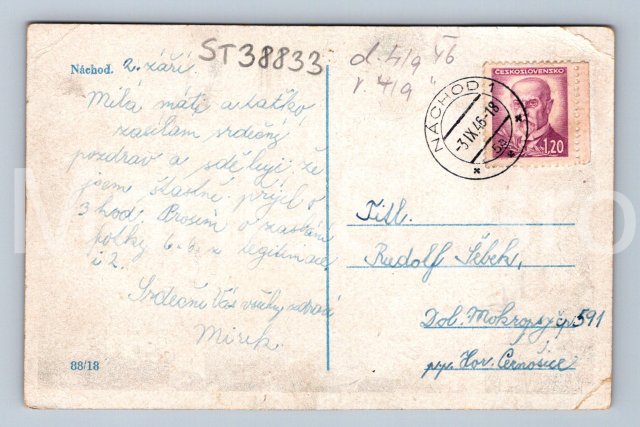 Náchod. 2. září.
ST38833
d. 4/9 46
v. 4/9 "
ČESKOSLOVENSKO
1,20
NÁCHOD 1
-3.IX.46-18
5a
Milá máti a tatko,
zasílám srdečný
pozdrav a sděluji že
jsem šťastně přijel o
3 hod. Prosím o zaslání
6. b. a legitimace
i 2.
Srdečně Vás všechny zdraví
Mirek.
Titl.
Rudolf Šebek,
Dol. Mokropsy čp. 591
Hor. Černošice
88/18